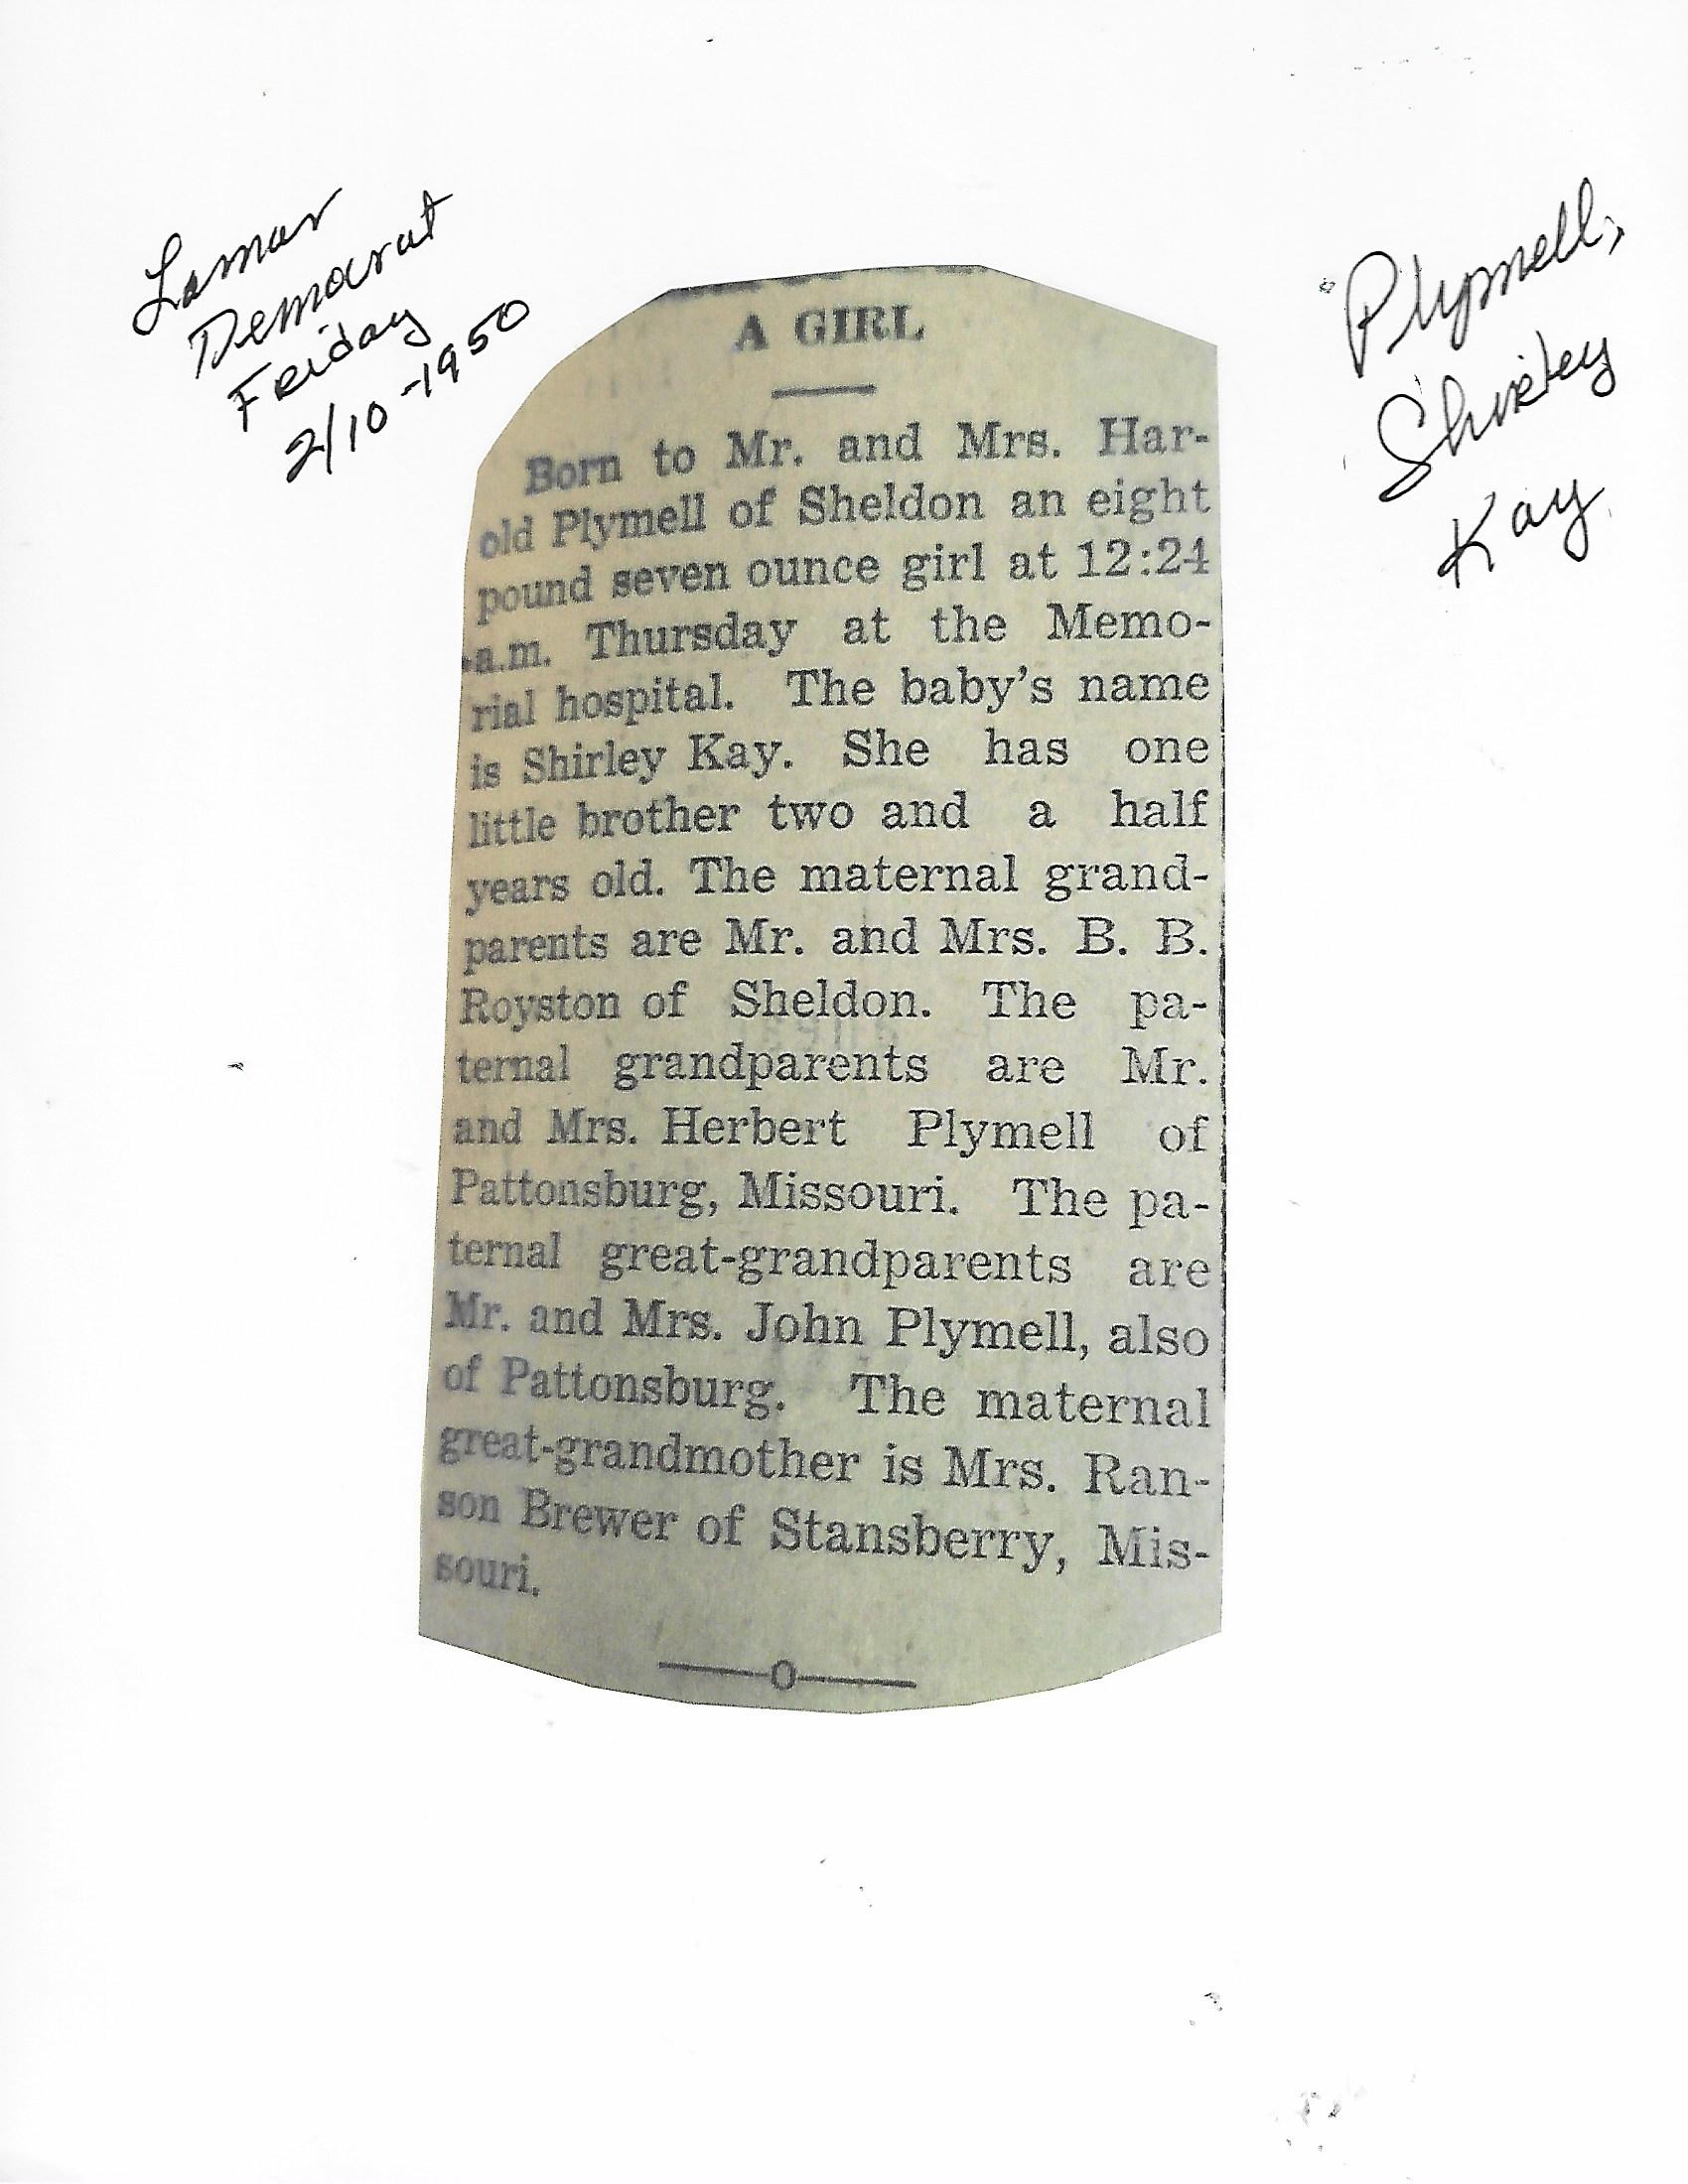 Lamar
Democrat
Friday
2/10-1950
Plymell,
Shirley
Kay
A GIRL
Born to Mr. and Mrs. Har-
old Plymell of Sheldon an eight
pound seven ounce girl at 12:24
a.m. Thursday at the Memo-
rial hospital. The baby's name
is Shirley Kay. She has one
little brother two and a half
years old. The maternal grand-
parents are Mr. and Mrs. B. B.
Royston of Sheldon. The pa-
ternal grandparents are Mr.
and Mrs. Herbert Plymell of
Pattonsburg, Missouri. The pa-
ternal great-grandparents are
Mr. and Mrs. John Plymell, also
of Pattonsburg. The maternal
great-grandmother is Mrs. Ran-
son Brewer of Stansberry, Mis-
souri.